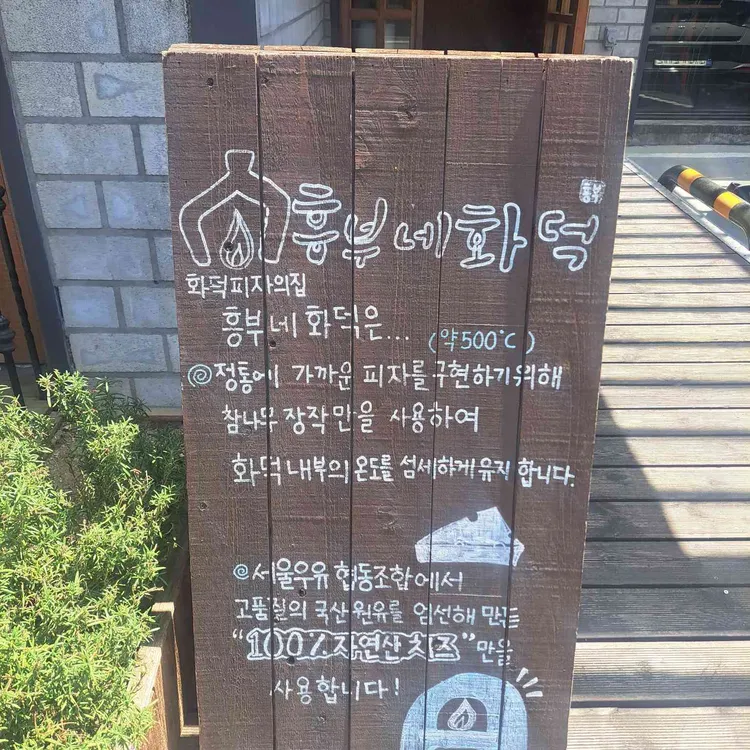 흥부
흥부네화덕
화덕피자의집
흥부네 화덕은...
(약500°C)
정통에 가까운 피자를 구현하기위해
참나무 장작만을 사용하여
화덕 내부의 온도를 섬세하게 유지 합니다.
서울우유 협동조합에서
고품질의 국산원유를 엄선해 만든
“100% 자연산 치즈” 만을
사용합니다!